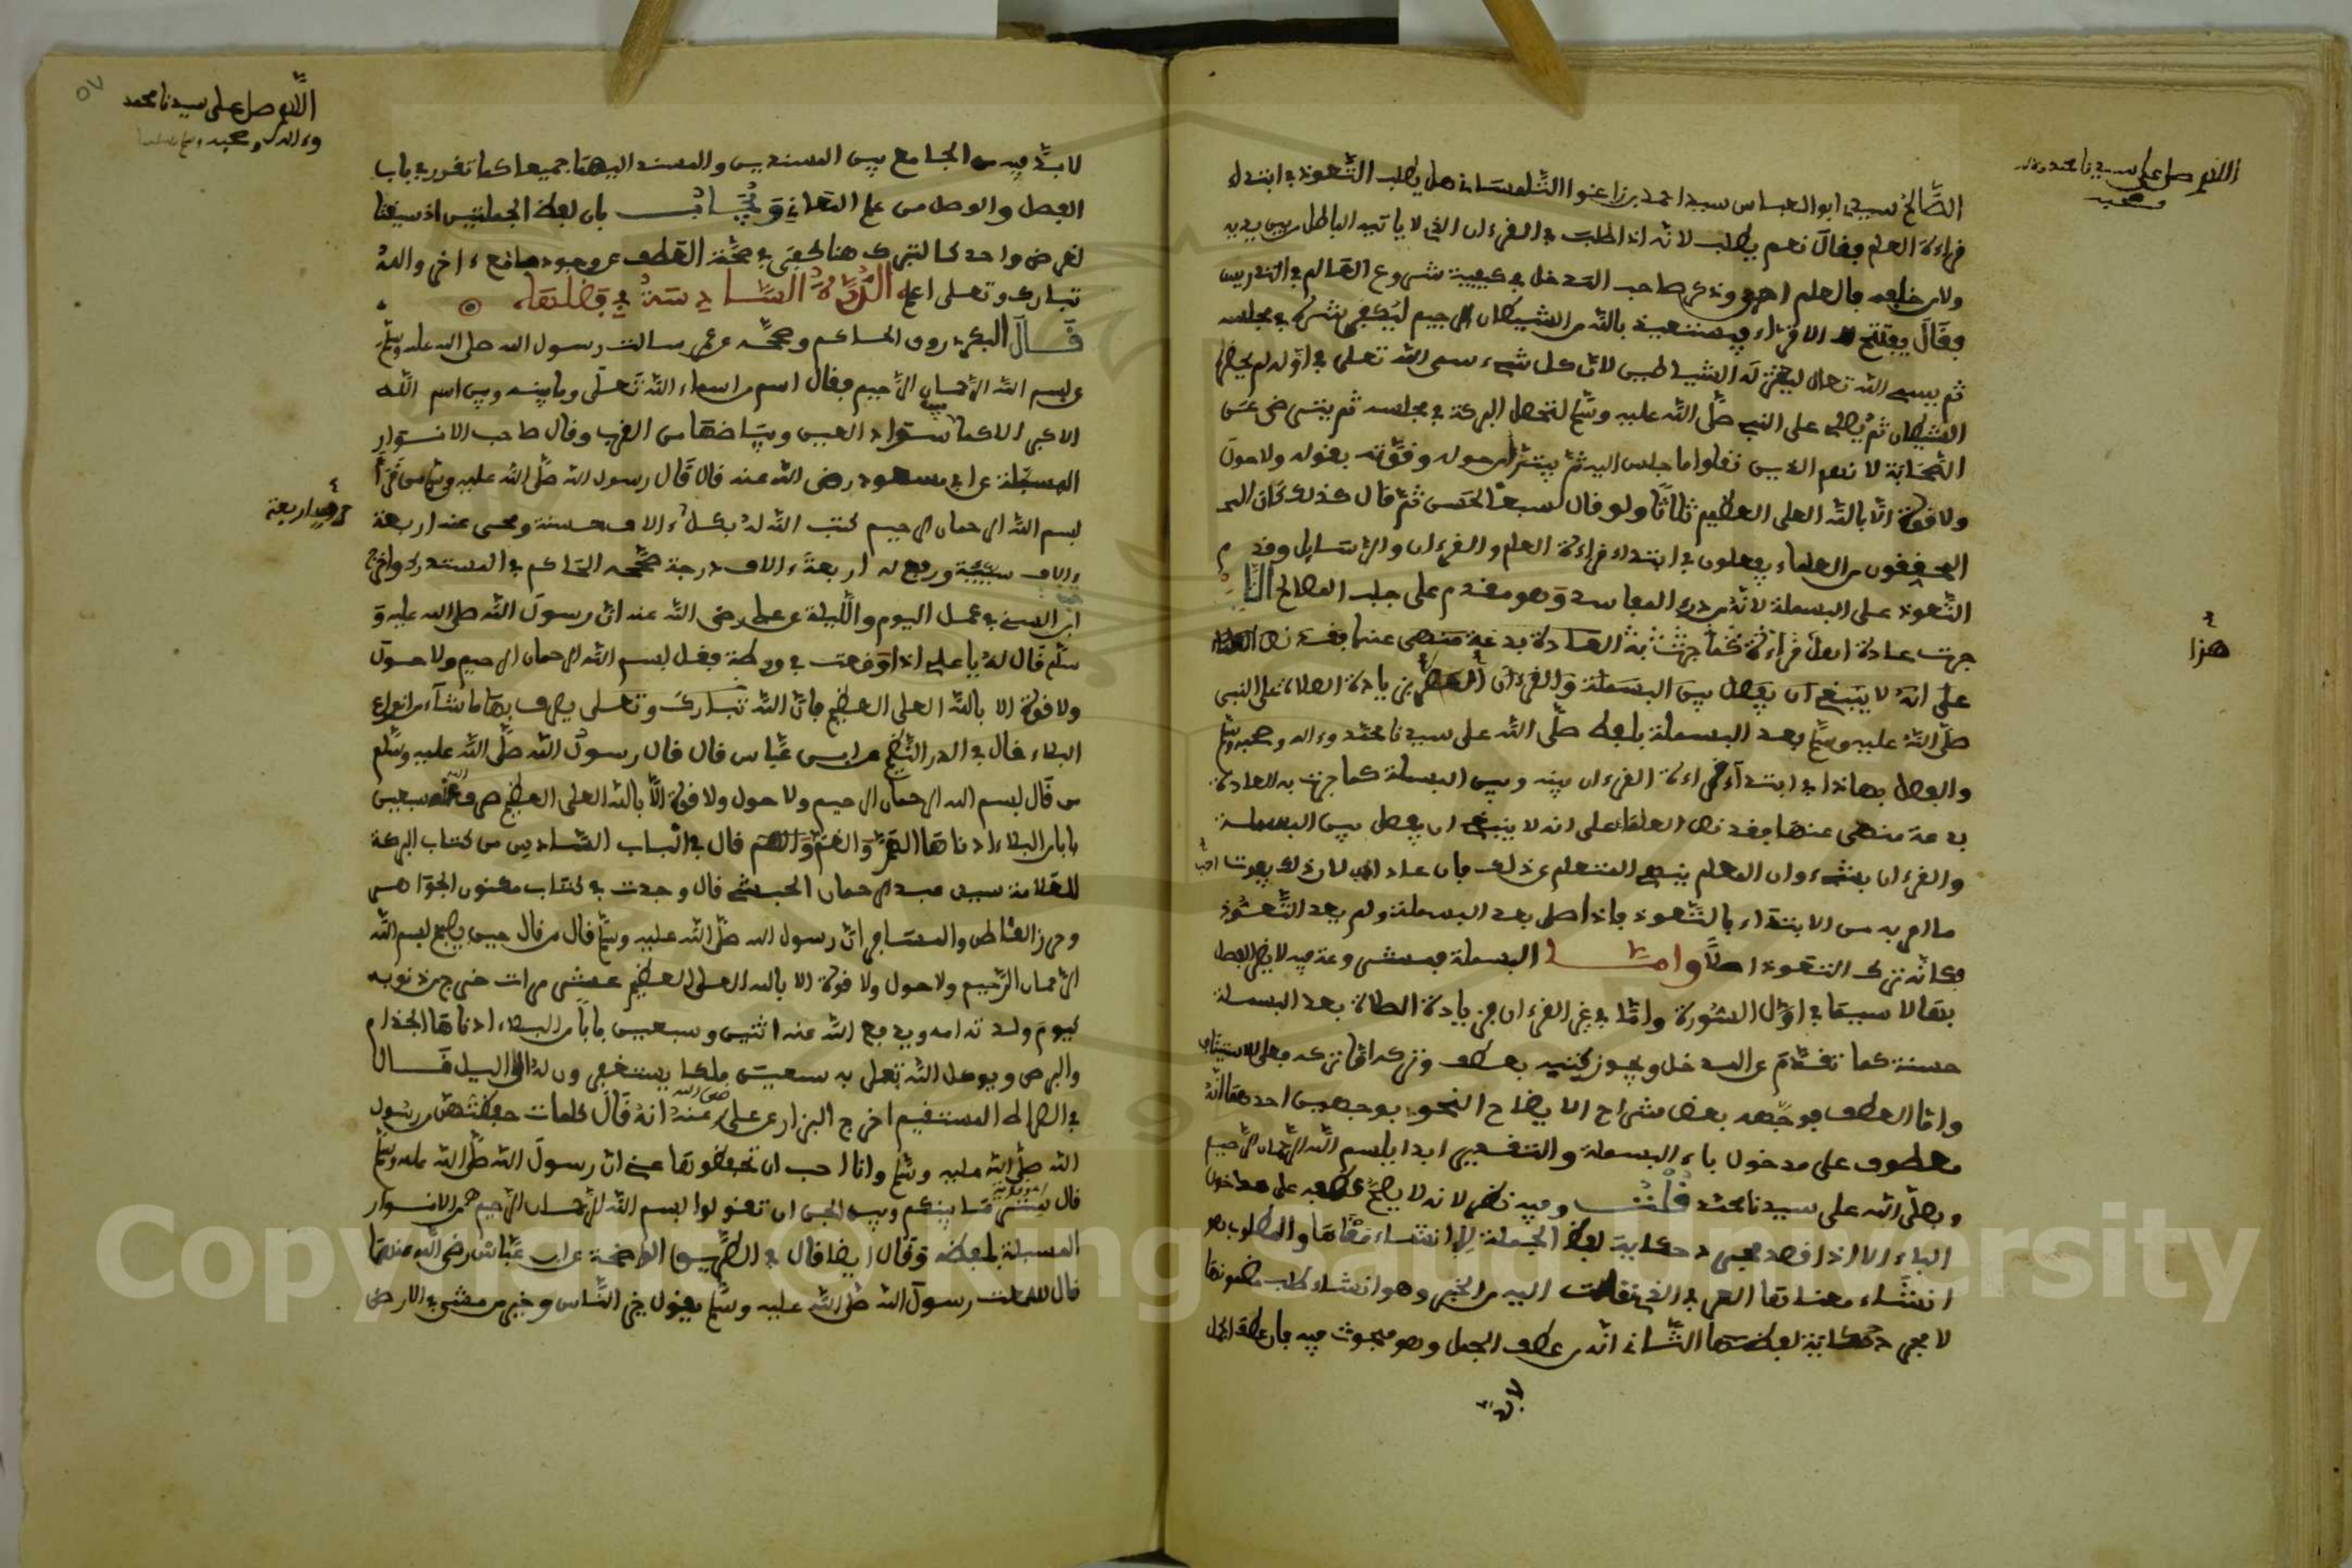 اللهم صل على سيدنا محمد وءاله
وصحبه
الصَّالح سيدي ابو العباس سيدي احمد بن زاغنوا التِّلمسَاني هل يطلب التَّعوذ في ابتداء
قراءة العلم فقال نعم يطلب لانَّه اذا طلبت في القرءان الذي لا ياتيه الباطل من بين يديه
ولا من خلفه فالعلم احرى وذكر صاحب المدخل في كيفية شروع العَالم في التدريس
فقَال يفتتح الاقراء ويستعيذ بالله من الشيطان الرجيم ليُكفى شره في مجلسه
ثم يسمي الله تعالى ليعتزله الشياطين لانَّ كل شيء سمى الله تعلى في اوّله لم يحضره
الشيطان ثمَّ يُصلي على النبي صلَّى الله عليه وسلَّم لتحصل البركة في مجلسه ثم يترضى عَن
الصَّحَابة لانهم الذين نقلوا ما جلس اليه ثمَّ يتبرّأ من حوله وقوّته بقوله ولا حول
ولا قوّة الّا بالله العلي العظيم ثلاثًا ولو قال سبعًا لحَسن ثمّ قال كذلك كَان
المحققون من العلماء يفعلون في ابتداء قراءة العلم والقرءان والرَّسايل وقدم
التَّعوذ على البسملة لانَّه من درء المفاسد وَهو مقدم على جلب المصالح
هذا
جرت عادة اهل قراءة كما جرت به العَادة بدعة منهى عنها فقد نص العلماء
على انهُ لا ينبَغي ان يَفصل بين البسَملة وَالقرءان العظيم بزيادة الصلاة على النبي
صلّى الله عليه وسلّم بعد البسملة بلفظ صلّى الله على سيدنا محمّد وءاله وصحبه وسلّم
والفصل بهاذا في ابتدآء قراءة القرءان بينه وبين البسملة كما جرت به العادة
بدعة منهى عنها فقد نص العلماء على انه لا ينبغي ان يفصل بين البسملة
والقرءان بشيء وان المعلم ينهى المتعلم عن ذلك فان عاد ادّبه لان ذلك يفوت
ما امر به من الابتداء بالتَّعوذ فاذا صلى بعد البسملة ولم يعد التَّعوّذ
فكانّه ترك التعوذ اصلًا وامَّا البسملة فمشروعة فيه لا يضر الفصل
بهَا لا سيمَا في اوّل السُّورة وامّا في غير القرءان فزيادة الصلاة بعد البسملة
حسنة كما تقدَّم عن المدخل ويجوز كَتبه بعطف وتركه امّا تركه فعلى الاستيناف
وامّا العطف فوجّهه بعض شراح الايضاح النحوي بوجهين احدهمَا انّهُ
معطوف على مدخول باء البسملة والتقدير ابدا ببسم الله الرَّحمان الرَّحيم
وبصلّى الله على سيدنا محمّد قُلْتُ وفيه نظر لانه لا يصحّ عطفه على مدخول
الباء الا اذا قصد مجرد حكاية لفظ الجملة لا انشاء معنَاهَا والمطلوب هو
انشَاء معناها العرفي الذي نقلت اليه من الخبر وهو انشاء طلب مضمونها
لا مجرد حكاية لفظها الثَّاني انّه من عطف الجمل وهو مبحوث فيه فان عطف الجمل
لا بدّ
٥٧
اللَّهم صل على سيدنا محمد
وءاله وصحبه وسلم تسليما
لا بدَّ فيه من الجامع بين المسندين والمسند اليهمَا جميعا كما تقرر في باب
الفصل والوصل من علم المَعاني وَيُجَابُ بان لفظ الجملتين اذ سيقتا
لغرض واحد كالتبرك هنا كفى في صحَّة العَطف عن وجود جامع ءاخر والله
تبارك وتعلى اعلم الدُّرَّةُ السَّادِسَةُ في فضلهَا
قَالَ البكري روى الحاكم وصحَّحه عن عمر سالت رسول الله صلى الله عليه وسلّم
عن بسم الله الرَّحمان الرَّحيم فقال اسم من اسماء الله تَعلى وما بينه وبين اسم الله
الاكبر الا كما بين سواد العين وبيَاضهَا من القرب وقال صاحب الانوار
المسبلة عن ابن مسعود رضي الله عنه قال قَال رسول الله صَلَّى الله عليه وسلّم من قَرَأ
بسم الله الرحمان الرحيم كتب الله لهُ بكل ءالاف حسنة ومحى عنه اربعة
ءالاف سيّئة ورفع له اربعةَ ءالاف درجة صحّحه الحَاكم في المستدرك واخرج
ابن السنى في عمل اليوم واللَّيلة عن علي رضي الله عنه انّ رسولَ الله صلى الله عليه وَ
سلّم قَال لهُ يا علي اذا وَقعت في ورطة فقل بسم الله الرحمان الرحيم ولا حولَ
ولا قوّة الا بالله العلي العظيم فانّ الله تبَارك وتعلى يصرف بهَا ما شآء من انواع
البلاء قال في الدر النَّظيم عن ابن عبَّاس قال قال رسولُ الله صلّى الله عليه وسَّلم
من قَال بسم الله الرحمان الرحيم ولا حول ولا قوّة الّا بالله العلى العظيم صرف الله عنه سبعين
بابا من البلاء ادناهَا الهَمُّ وَالغمُّ وَاللمَم قال في البَاب السَّادس من كتاب البركة
للعَلامة سيدى عبد الرحمان الحبشي قال وجدت في كتاب مكنون الجوَاهر
ان رسول الله صلّى الله عليه وسلّم قال من قال حين يصبح بسم الله
الرّحمان الرَّحيم ولا حول ولا قوة الا بالله العلي العظيم عشر مرات خرج من ذنوبه
كيومَ ولدته امه ودفع الله عنه اثنين وسبعين بابًا من البلاء ادناهَا الجذام
والبرص ويوكل الله تعلى به سبعين ملكا يستغفرون لهُ الى اليل قَال
في الصراط المستقيم اخرج البزار عن علي رضي الله عنهُ انهُ قَالَ كلمات حفظتهنّ من رسُول
الله صلّى الله عليه وسلّم وانا احب ان تحفظوهَا عني انّ رسولَ الله صلَّى الله عليه وسلّم
قال ستر مَا بينكم وبين الجن ان تقولوا بسم الله الرّحمان الرّحيم من الانوار
المسبلة بلفظه وَقَال ايضا قال في الطَّريق الواضحة عن ابن عبّاس رضي الله عنهمَا
قال سمعت رسولَ الله صلّى الله عليه وسَلّم يقول خير النَّاس وخير من مشى في الارض